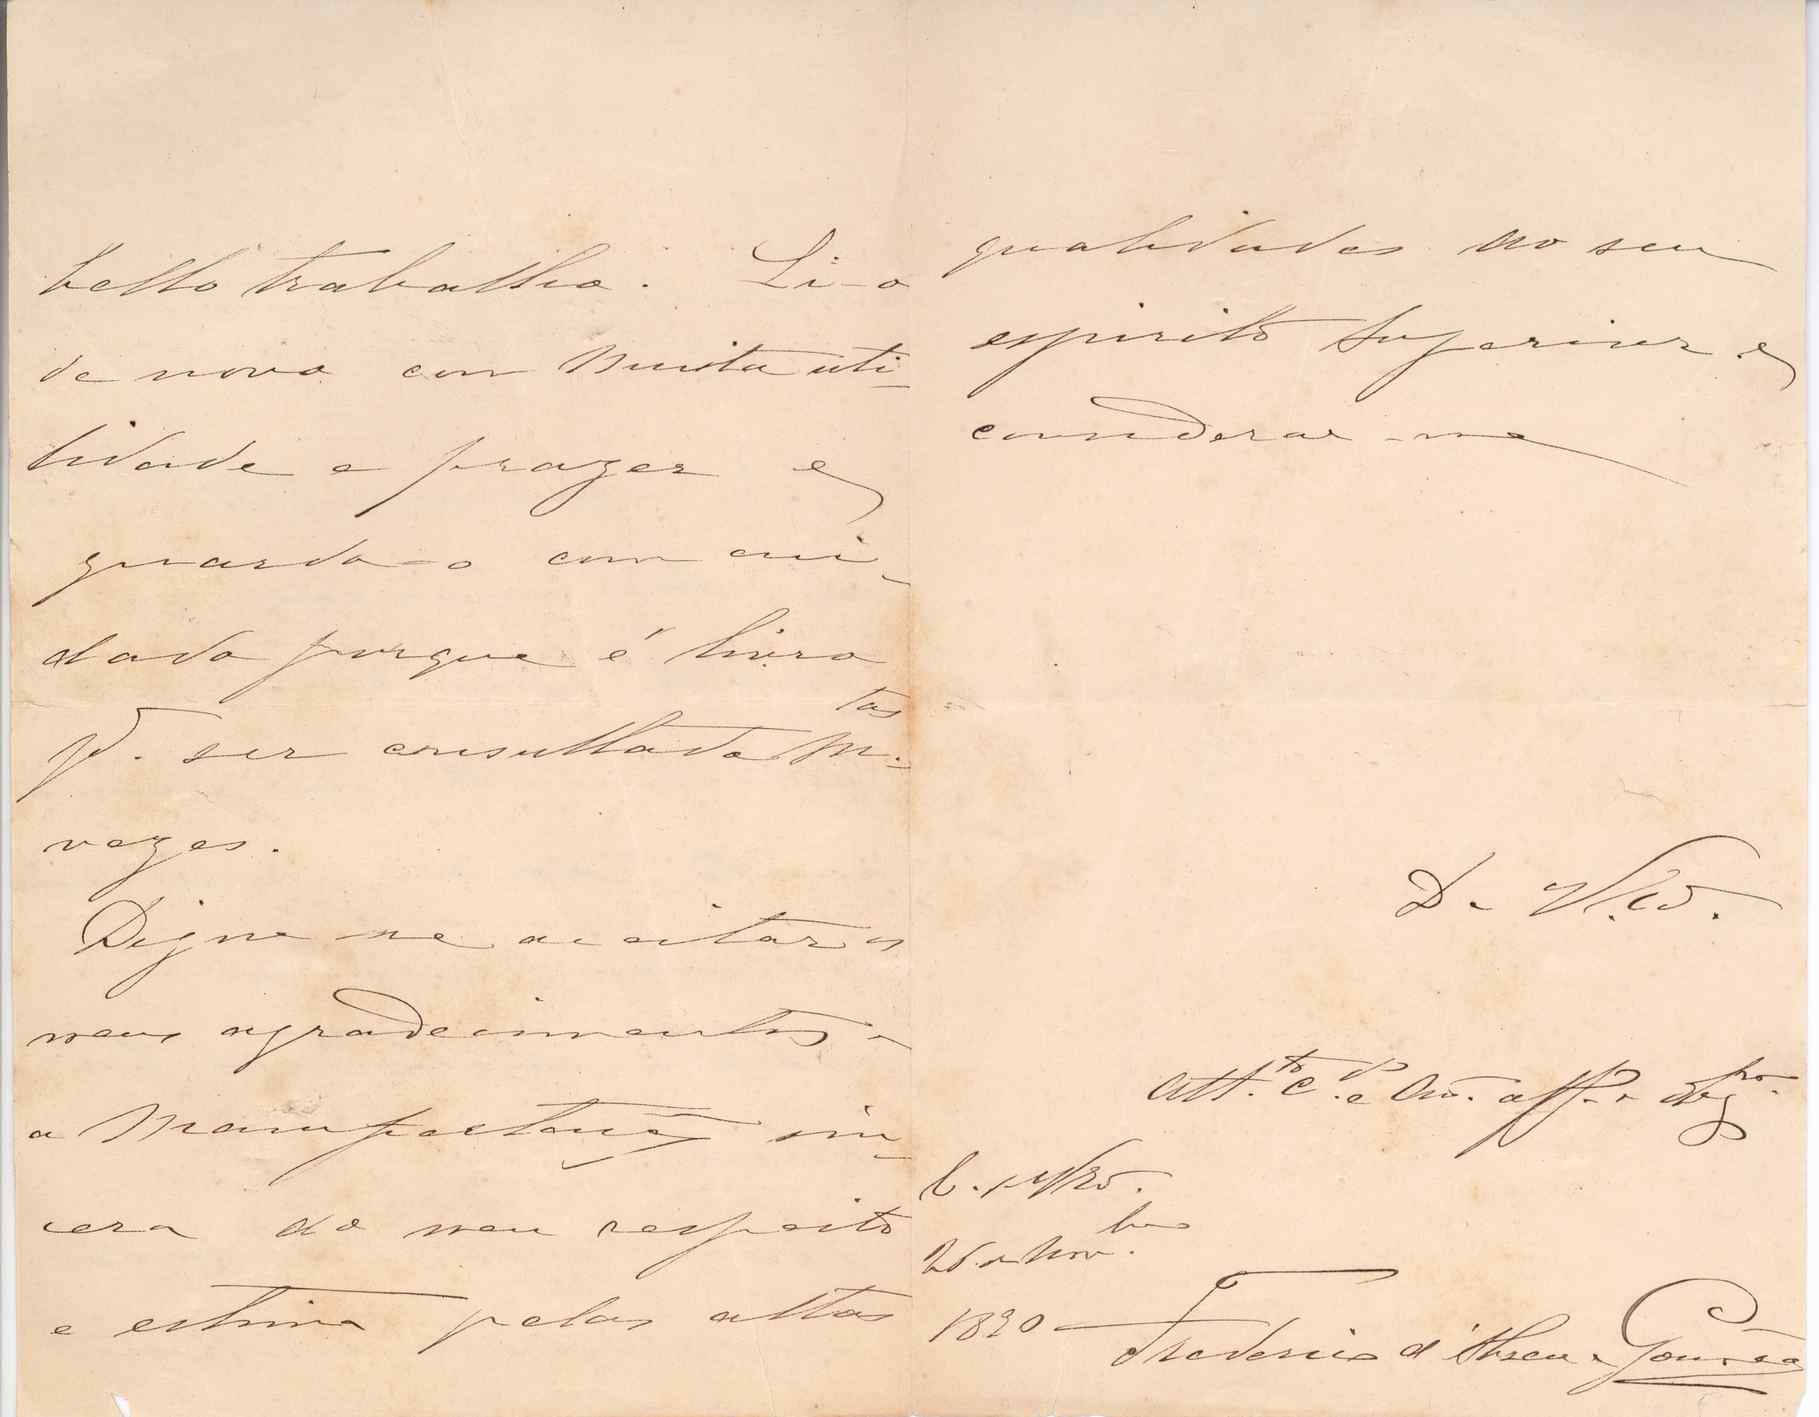 bello trabalho. Li-o
de novo com muita uti-
lidade e prazer e
guardo-o com cui-
dado porque é livro
pª. ser consultado m.tas
vezes.
Digne-se aceitar os
meus agradecimentos e
a manifestação sin-
cera do meu respeito
e estima pelas altas
qualidades do seu
espirito superior e
considerar-me
De V. Exª.
Att.to C.do e Am.º aff.º e obg.mo
26 de Nov.bro
1890
Frederico d'Abreu e Gouvêa